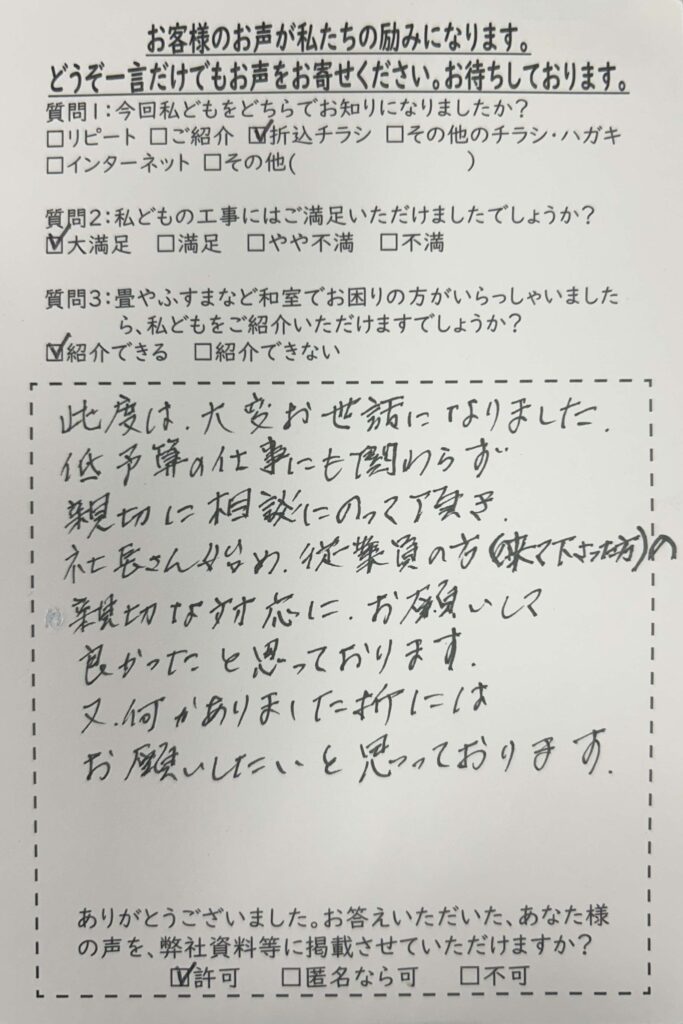 お客様のお声が私たちの励みになります。
どうぞ一言だけでもお声をお寄せください。お待ちしております。
質問1:今回私どもをどちらでお知りになりましたか?
□リピート □ご紹介 ☑折込チラシ □その他のチラシ・ハガキ
□インターネット □その他( )
質問2:私どもの工事にはご満足いただけましたでしょうか?
☑大満足 □満足 □やや不満 □不満
質問3:畳やふすまなど和室でお困りの方がいらっしゃいました
ら、私どもをご紹介いただけますでしょうか?
☑紹介できる □紹介できない
此度は、大変お世話になりました.
低予算の仕事にも関わらず
親切に相談にのって頂き.
社長さん始め、従業員の方(来て下さった方)の
親切な対応に、お願いして
良かったと思っております.
又、何かありました折には
お願いしたいと思っております.
ありがとうございました。お答えいただいた、あなた様
の声を、弊社資料等に掲載させていただけますか?
☑許可 □匿名なら可 □不可